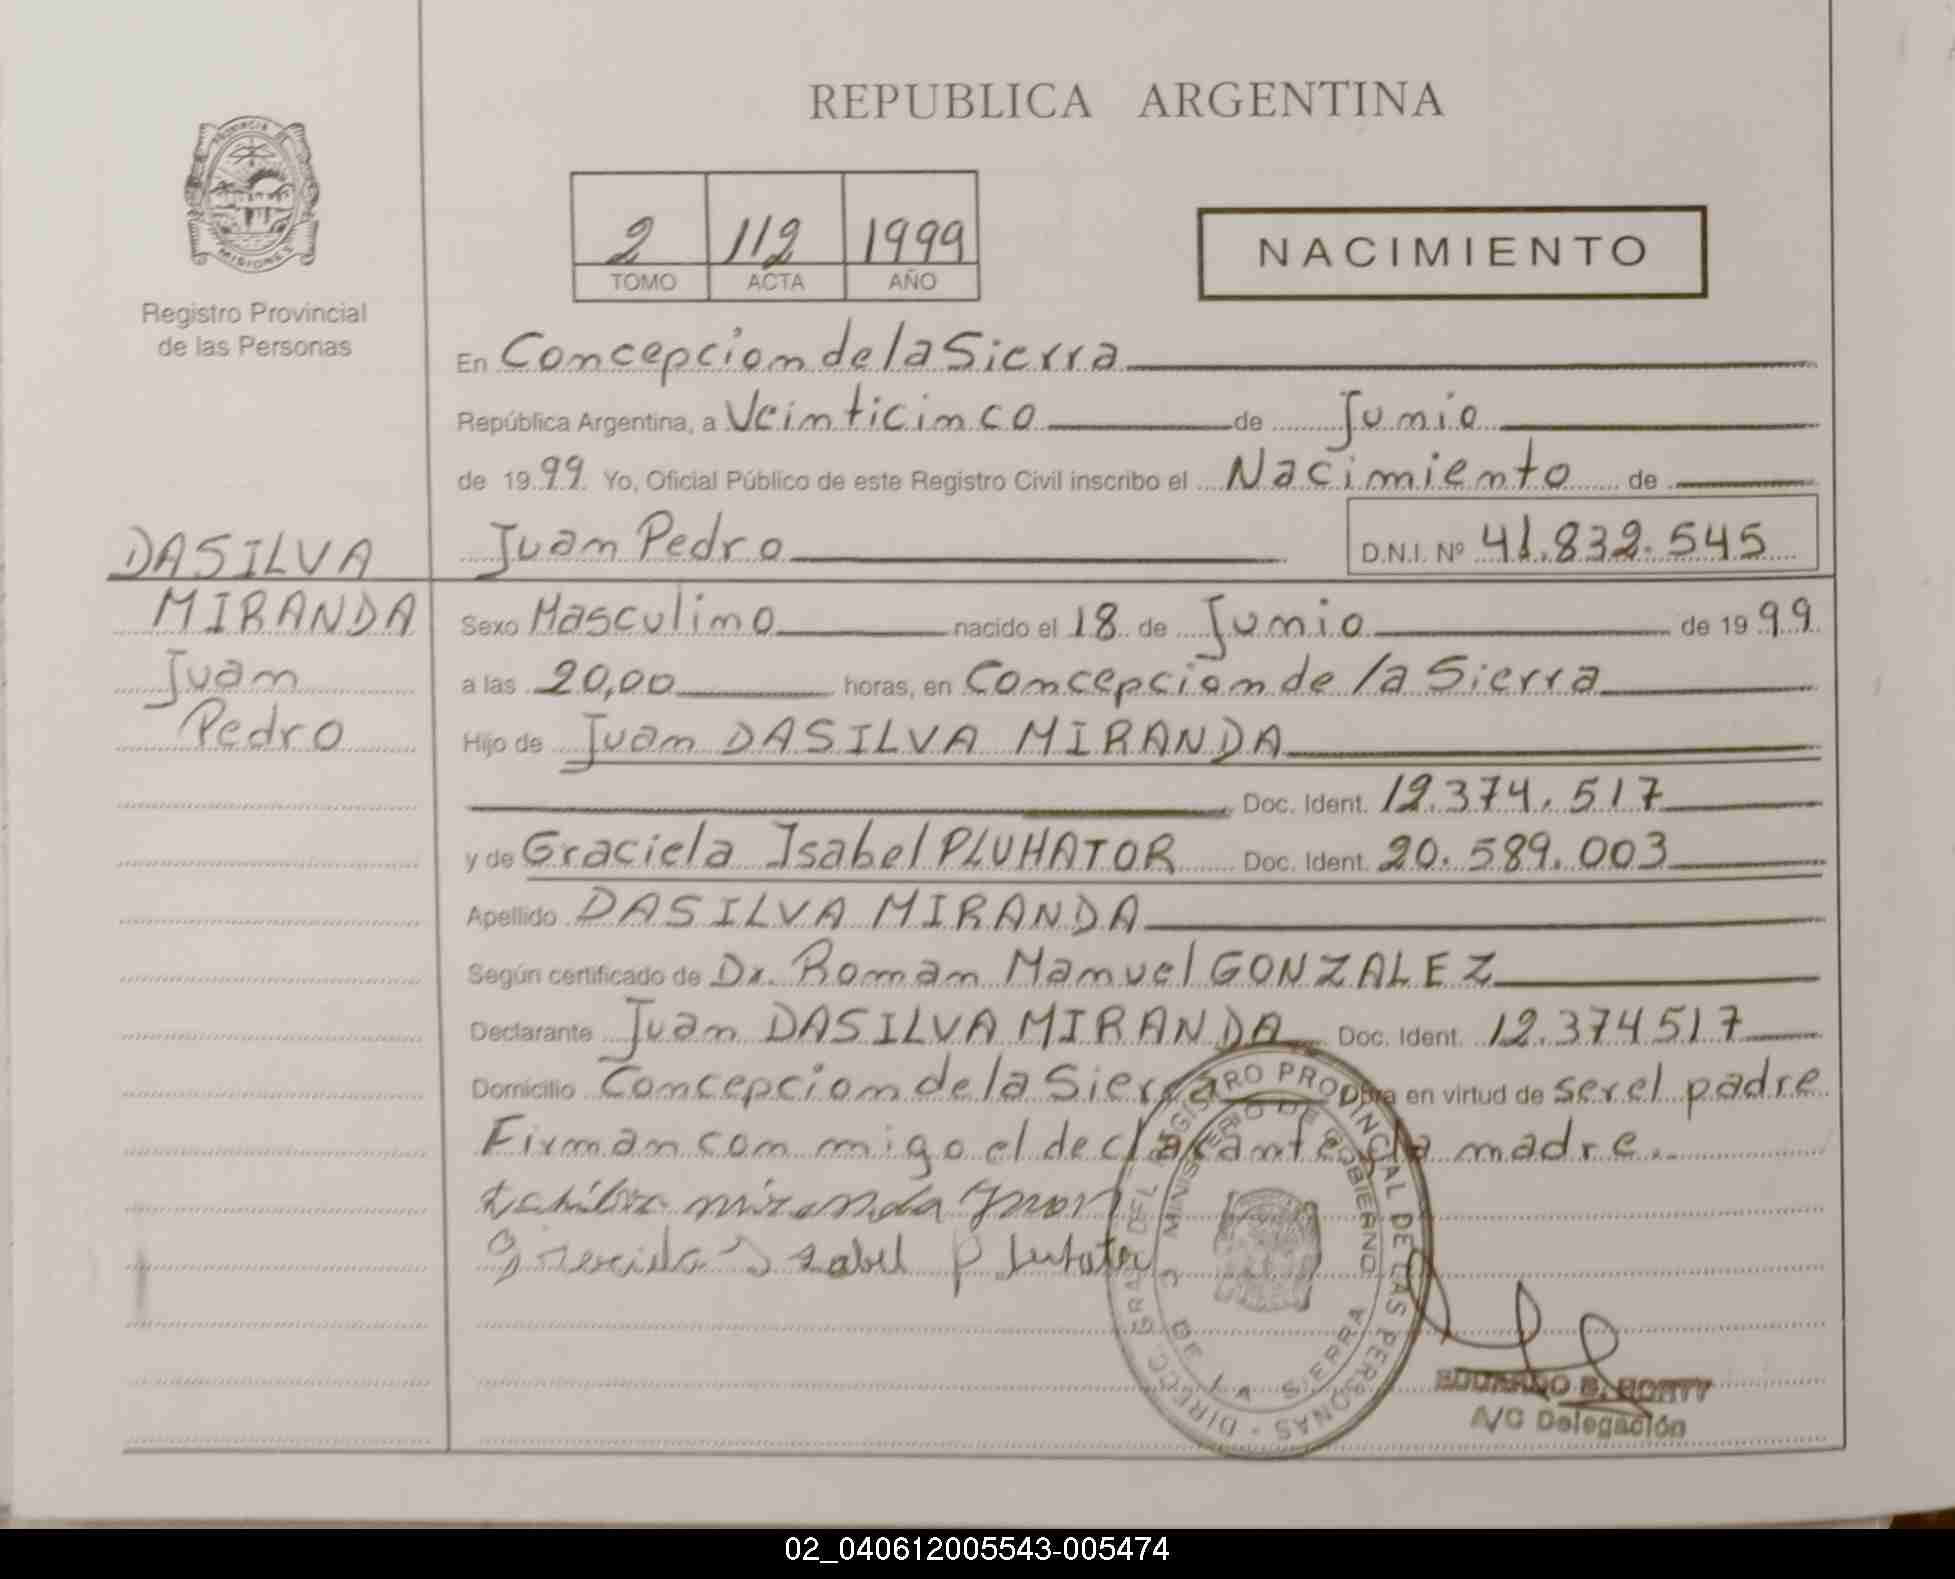 REPUBLICA ARGENTINA
PROVINCIA DE
MISIONES
Registro Provincial
de las Personas
2 112 1999
TOMO ACTA AÑO
NACIMIENTO
En Concepcion de la Sierra
República Argentina, a Veinticinco de Junio
de 1999 Yo, Oficial Público de este Registro Civil inscribo el Nacimiento de
Juan Pedro D.N.I. Nº 41.832.545
DASILVA
MIRANDA
Juan
Pedro
Sexo Masculino nacido el 18 de Junio de 1999
a las 20,00 horas, en Concepcion de la Sierra
Hijo de Juan DASILVA MIRANDA
Doc. Ident. 12.374.517
y de Graciela Isabel PLUHATOR Doc. Ident. 20.589.003
Apellido DASILVA MIRANDA
Según certificado de Dr. Roman Manuel GONZALEZ
Declarante Juan DASILVA MIRANDA Doc. Ident. 12.374517
Domicilio Concepcion de la Sierra Obra en virtud de ser el padre
Firman con migo el declarante y la madre.
miranda Juan
Isabel
DIRECC. GRAL DEL REGISTRO PROVINCIAL DE LAS PERSONAS
MINISTERIO DE GOBIERNO
DE LA SIERRA
A/C Delegación
02_040612005543-005474